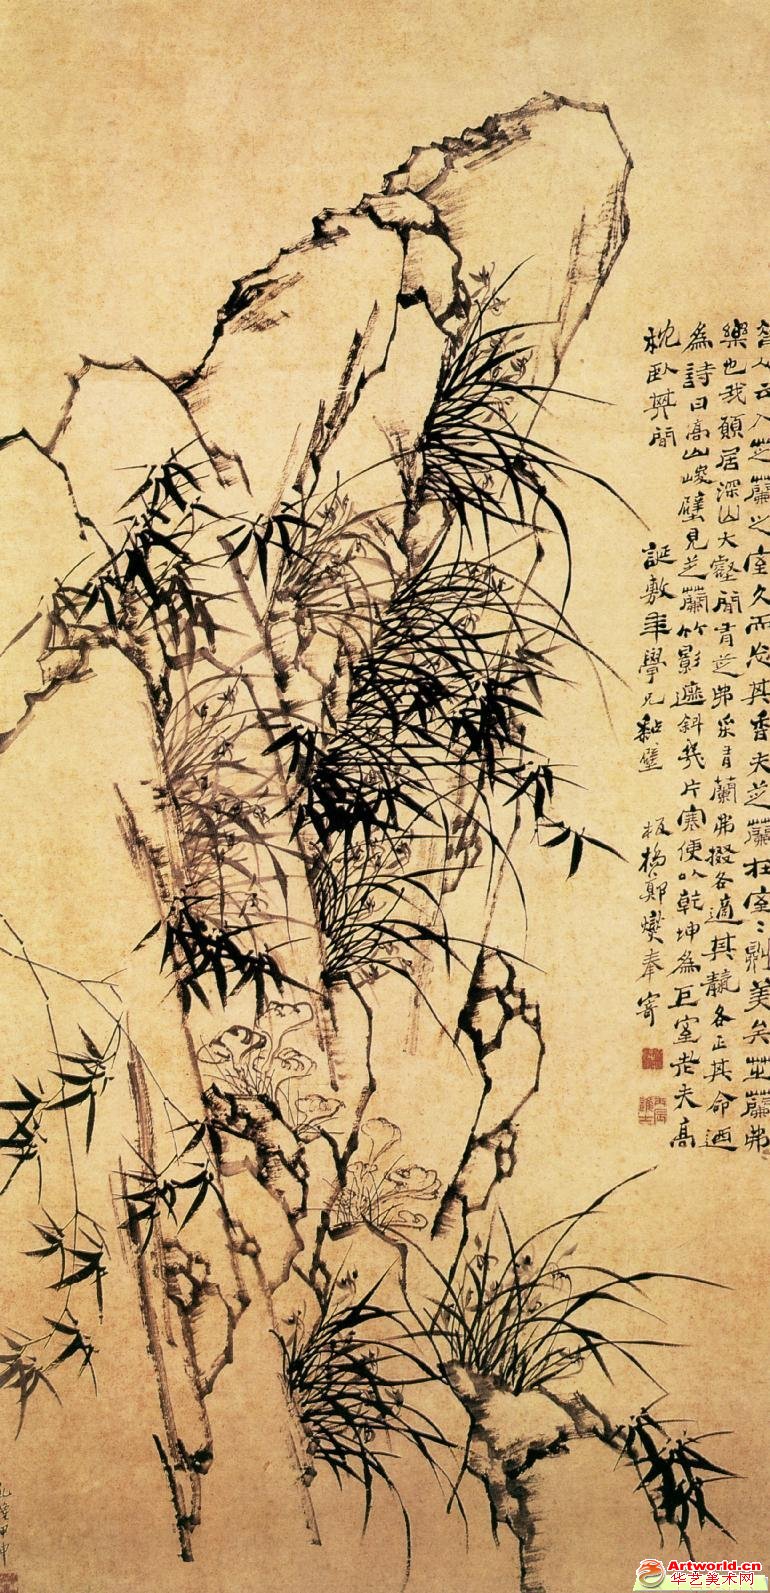 昔人云入芝蘭之室久而忘其香夫芝蘭在室室則美矣芝蘭弗
樂也我願居深山大壑間有芝弗采有蘭弗掇各適其天各正其命迺
為詩曰高山峻壁見芝蘭竹影遮斜幾片寒便以乾坤為巨室老夫高
枕臥其間
誕敷年學兄粘壁
板橋鄭燮奉寄
乾隆甲申
Artworld.cn
华艺美术网